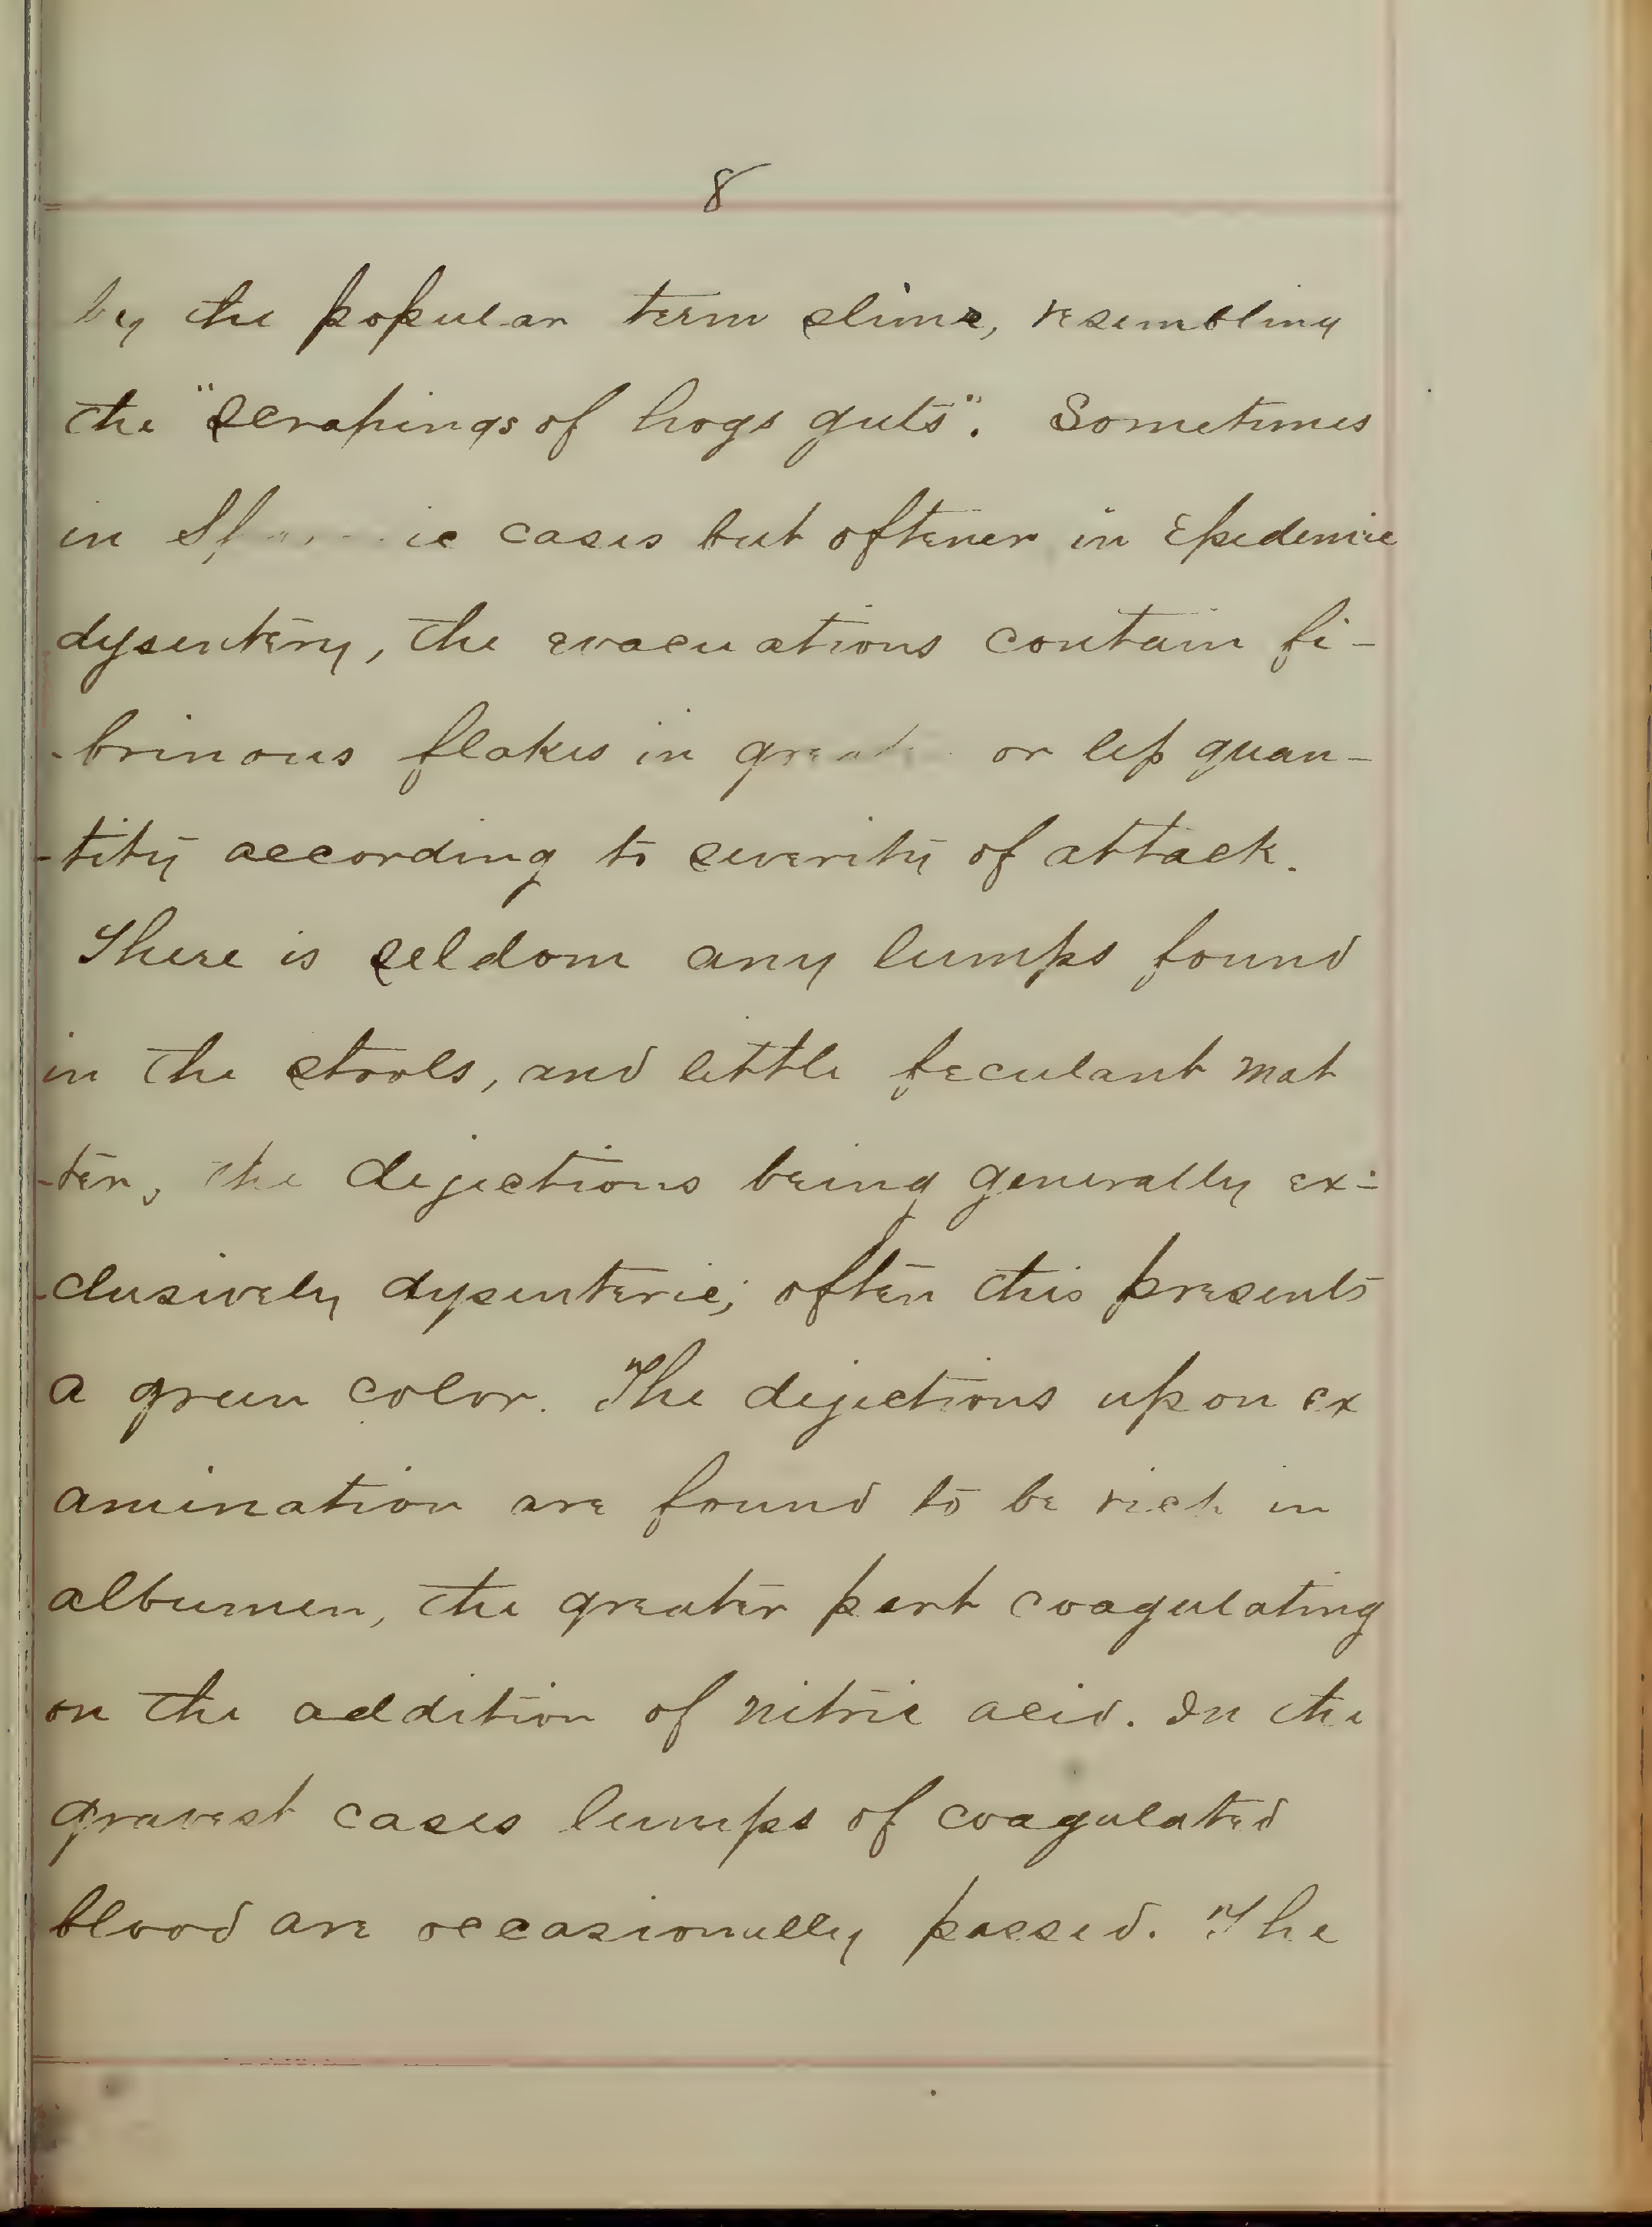 8
by the popular term slime, resembling
the "scrapings of hogs guts". Sometimes
in cases but oftener in Epedemic
dysentery, the evacuations contain fi-
-brinous flakes in or less quan-
-tity according to severity of attack.
There is seldom any lumps found
in the stools, and little feculant mat
-ter, the dejections being generally ex-
-clusively dysenteric; often this presents
a green color. The dejections upon ex
amination are found to be rich in
albumen, the greater part coagulating
on the addition of nitric acid. In the
gravest cases lumps of coagulated
blood are occasionally passed. The